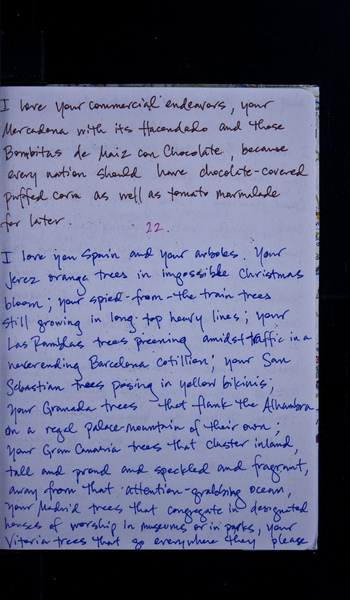 I love your commercial endeavors, your
Mercadona with its Hacendado and those
Bombitas de Maiz con Chocolate, because
every nation should have chocolate-covered
puffed corn as well as tomato marmalade
for later.
22.
I love you Spain and your arboles. Your
Jerez orange trees in impossible Christmas
bloom; your spied-from-the train trees
still growing in long-top heavy lines; your
Las Ramblas trees preening amidst traffic in a
neverending Barcelona cotillion; your San
Sebastian trees posing in yellow bikinis;
your Granada trees that flank the Alhambra
on a regal palace-mountain of their own;
your Gran Canaria trees that cluster inland,
tall and proud and speckled and fragrant,
away from that attention-grabbing ocean,
your Madrid trees that congregate in designated
houses of worship in museums or in parks, your
Vitoria trees that go everywhere they please